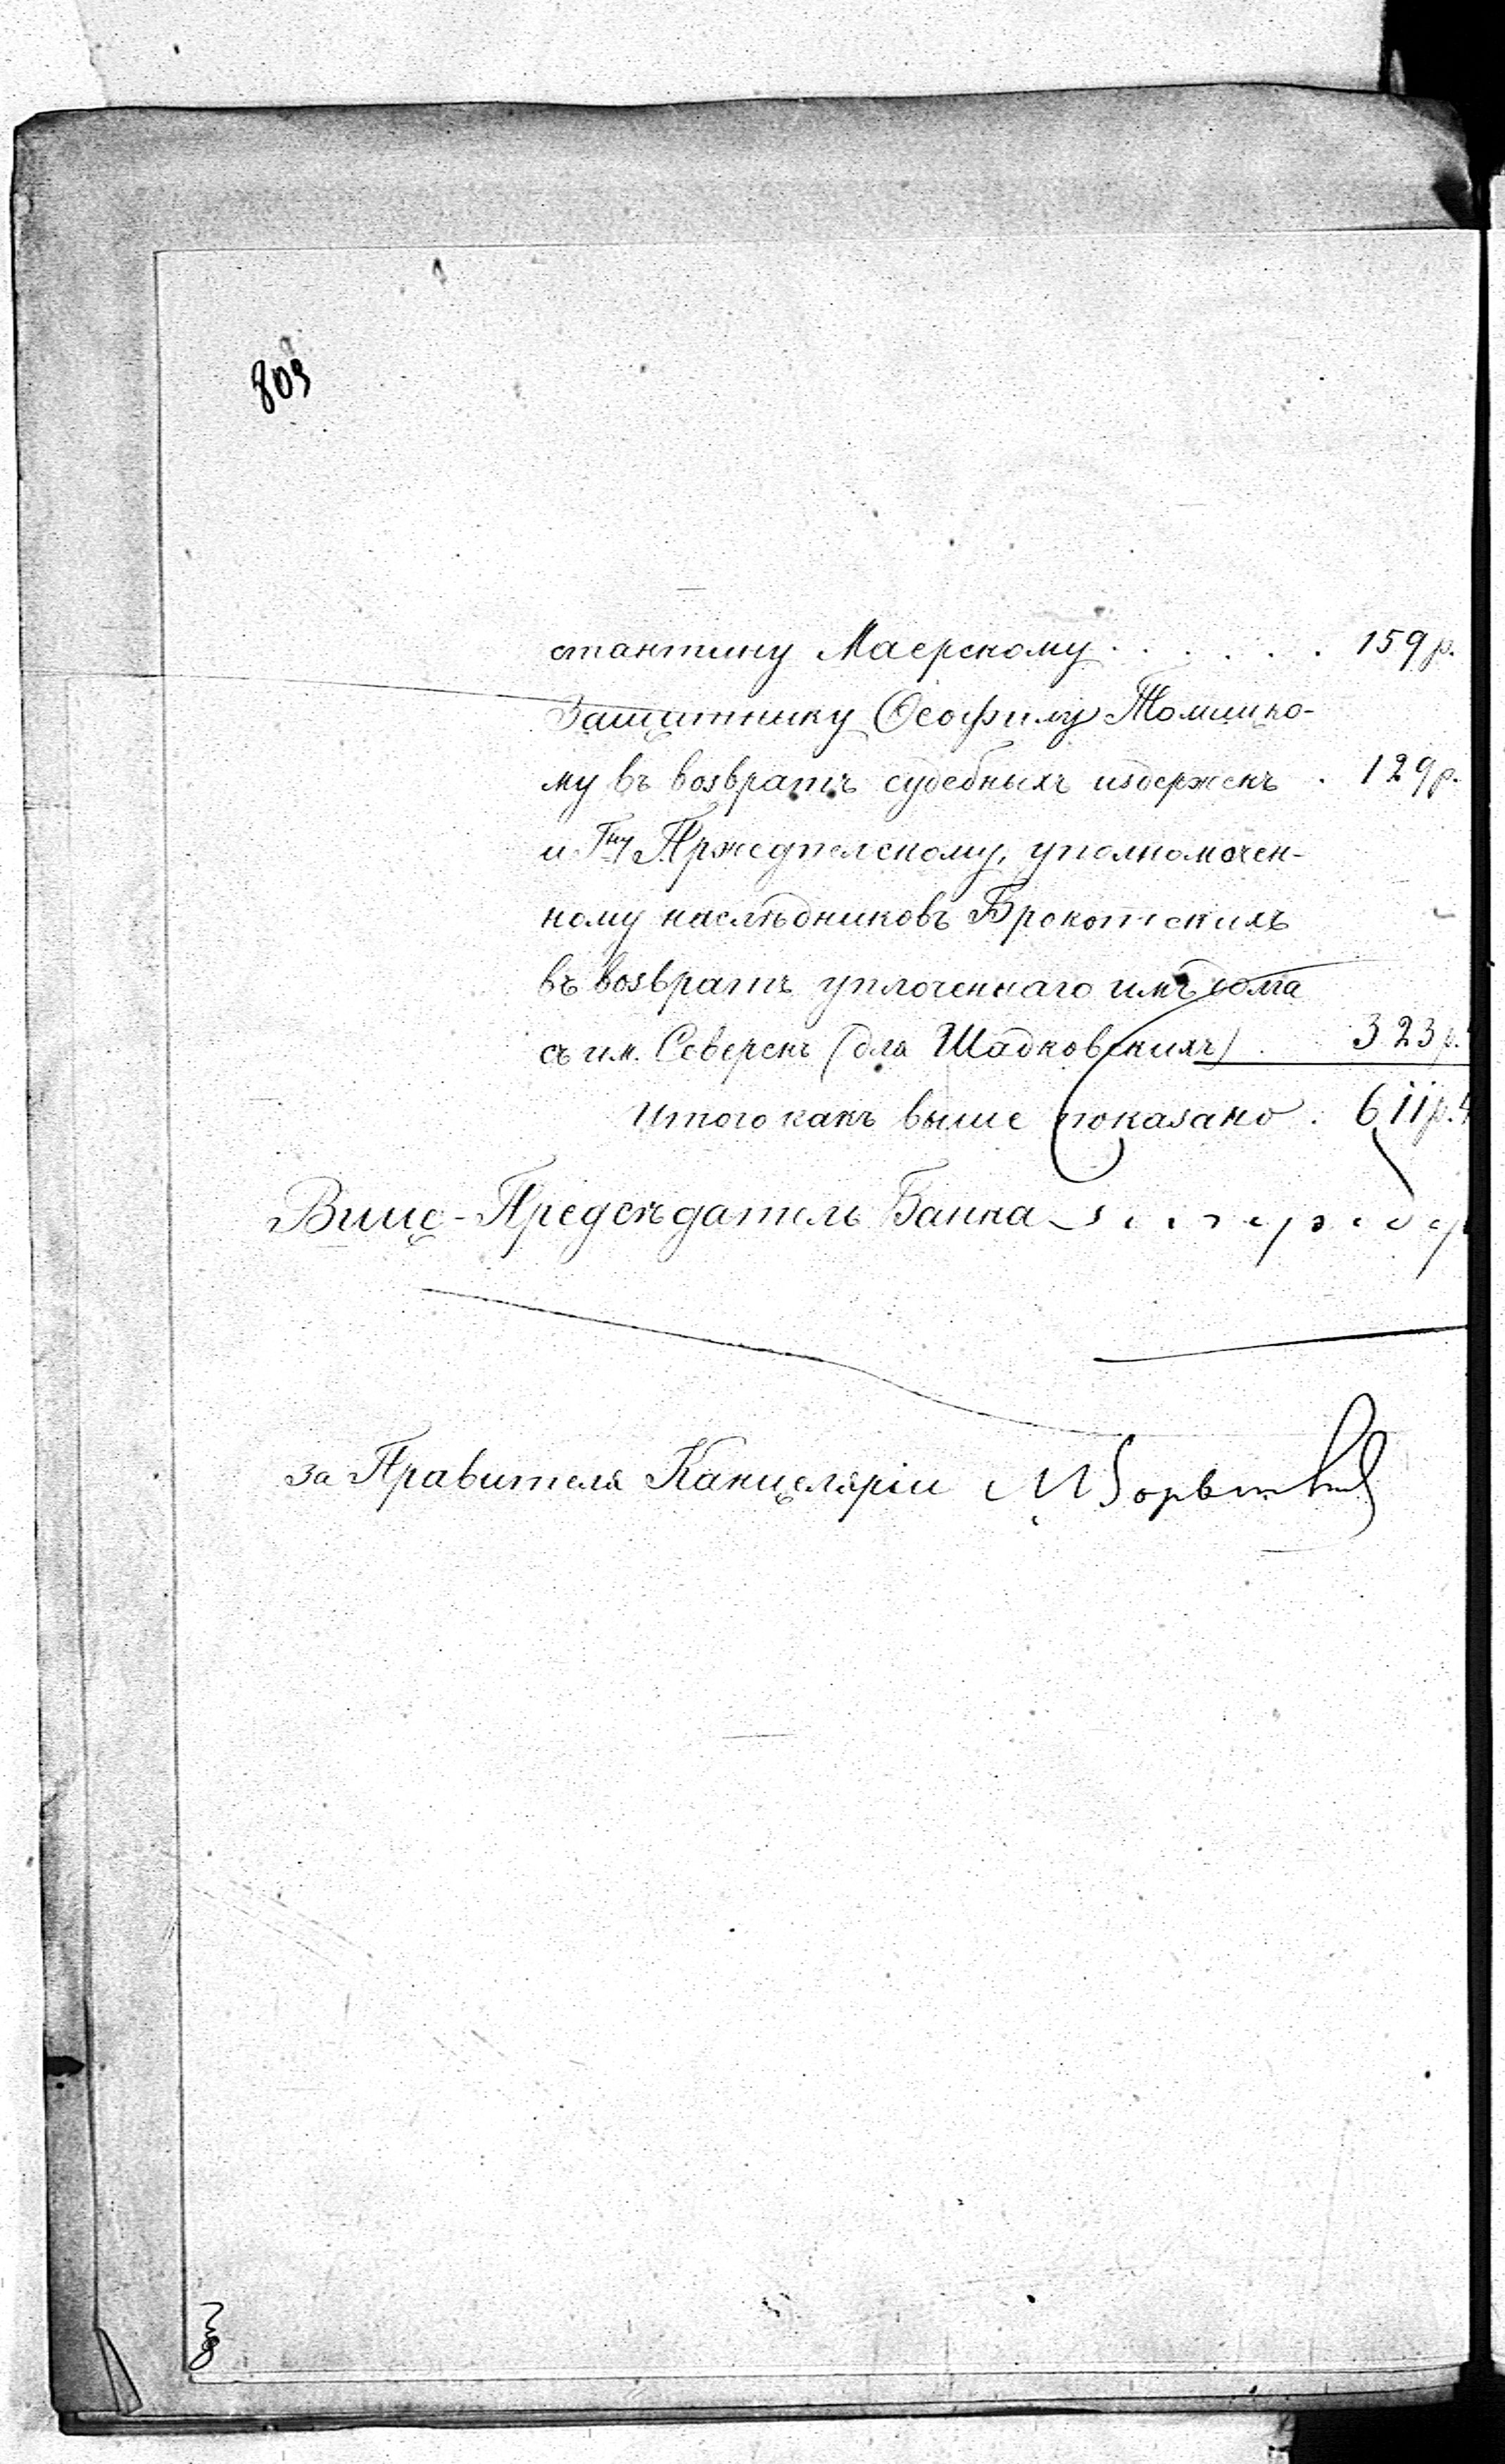 803
стантину Маерскому . . . . . . 159 р.
Защитнику Ѳеофилу Томицко-
му въ возвратъ судебныхъ издержекъ . 129 р.
и Гну Пржедпелскому, уполномочен-
ному наслѣдниковъ Брокотскихъ
въ возвратъ уплоченнаго имъ долга
съ им. Северскъ (для Шадковскихъ) . 323 р.
Итого какъ выше показано . 611 р. 4
Вице-Предсѣдатель Банка
за Правителя Канцеляріи